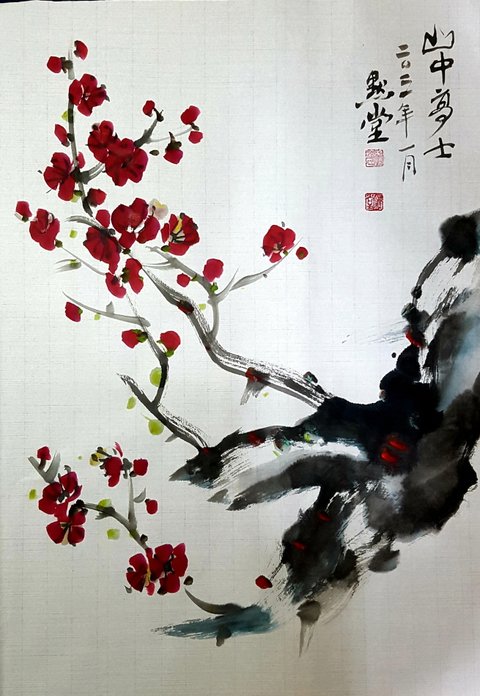 山中高士
二〇二一年一月
默堂